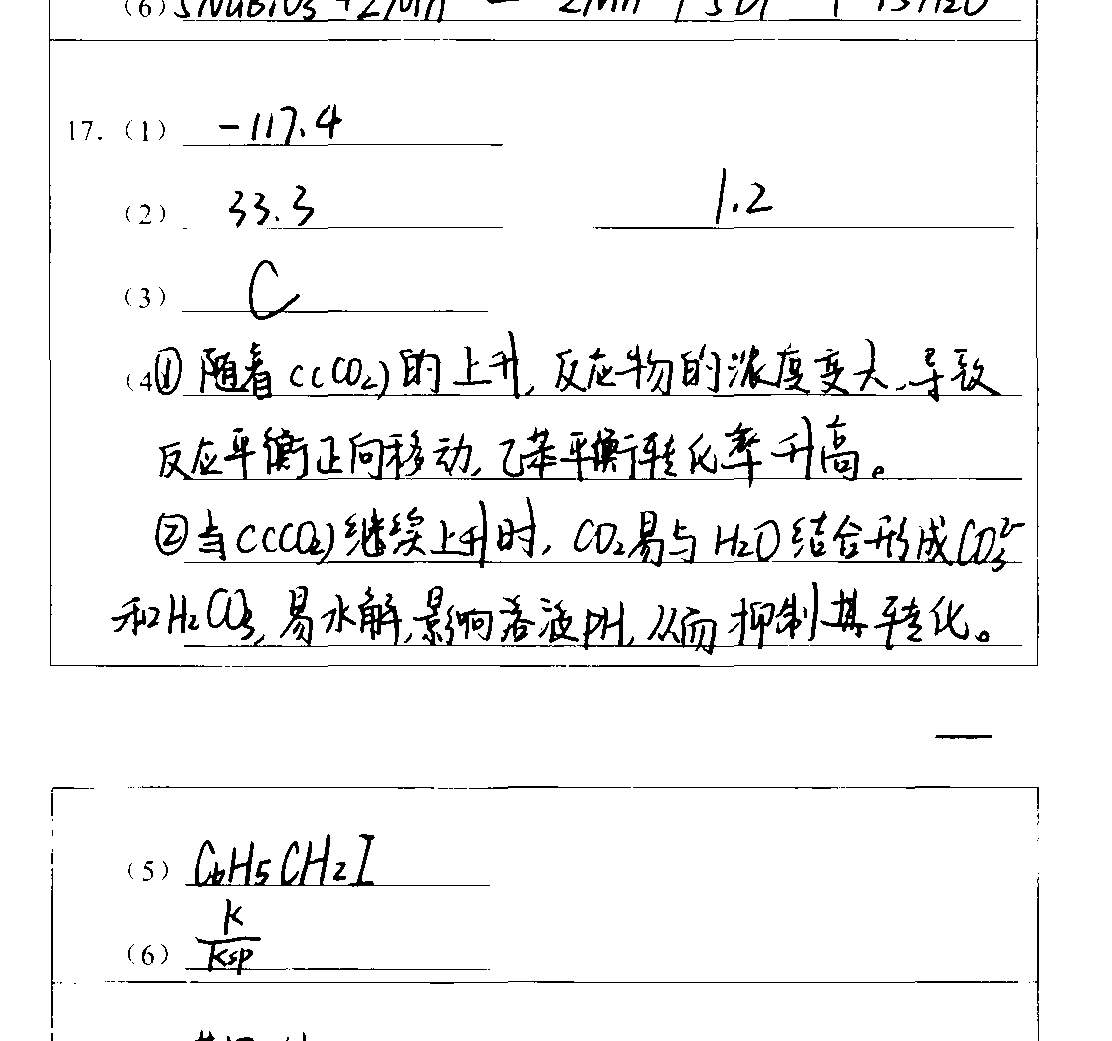 (6) 5NaBiO3 + 2Mn
17. (1) -117.4
(2) 33.3 1.2
(3) C
(4) ① 随着c(CO₂)的上升, 反应物的浓度变大, 导致
反应平衡正向移动, 乙苯平衡转化率升高。
②当C(CO₂)继续上升时, CO₂易与H₂O结合形成CO₃²⁻
和H₂CO₃, 易水解, 影响溶液pH, 从而抑制其转化。
(5) C₆H₅CH₂I
(6) K/Ksp